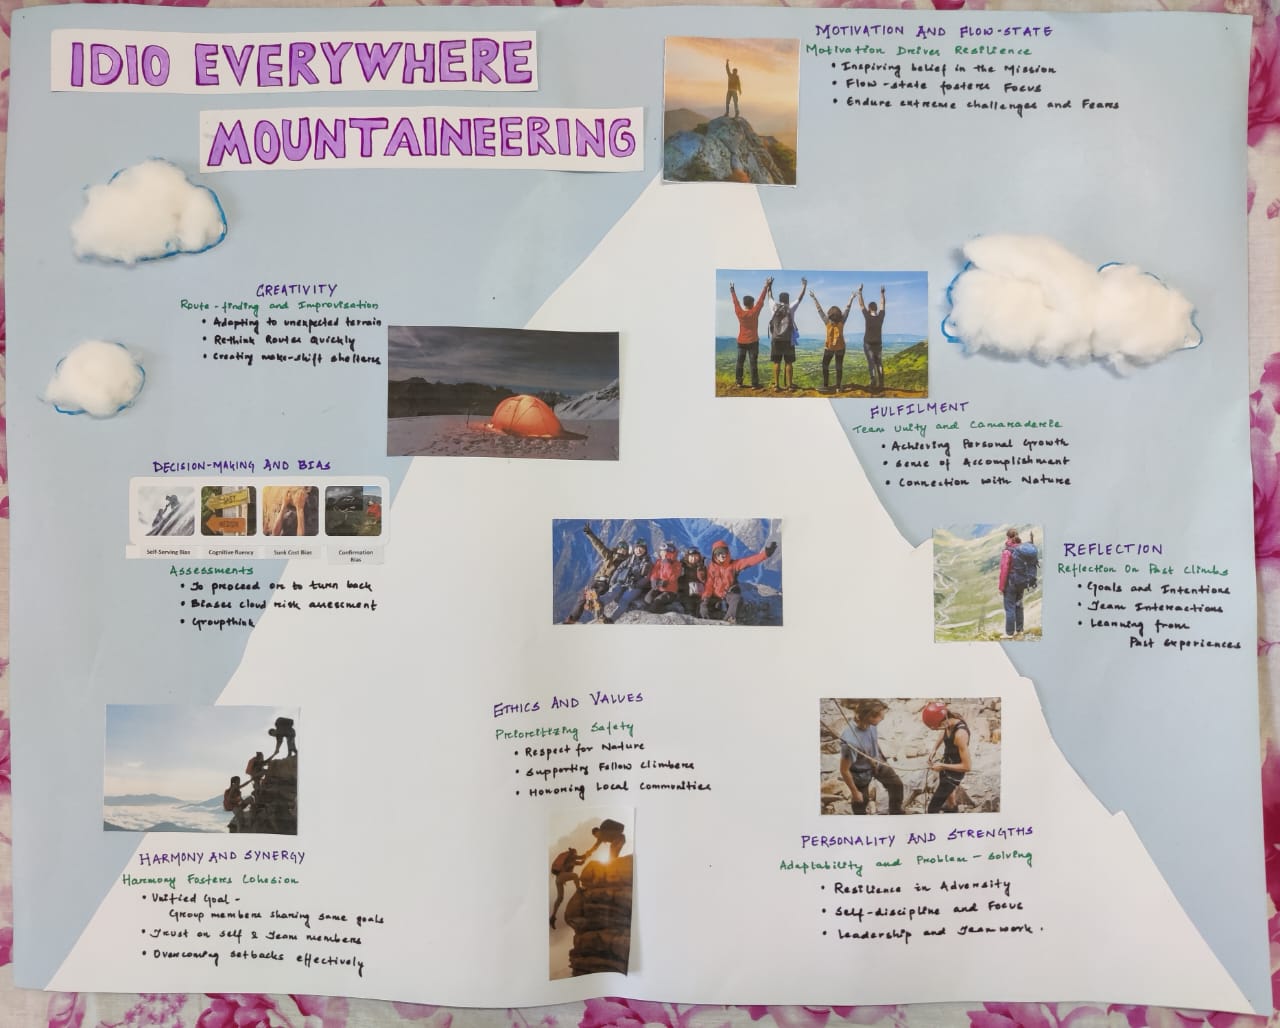 IDIO EVERYWHERE
MOUNTAINEERING
MOTIVATION AND FLOW-STATE
Motivation Drives Resilience
• Inspiring belief in the Mission
• Flow-state fosters Focus
• Endure extreme challenges and Fears
CREATIVITY
Route-finding and Improvisation
• Adapting to unexpected terrain
• Rethink Routes Quickly
• Creating make-shift shelters
FULFILMENT
Team Unity and Camaraderie
• Achieving Personal Growth
• Sense of Accomplishment
• Connection with Nature
DECISION-MAKING AND BIAS
EAST
MEDIUM
Self-Serving Bias
Cognitive fluency
Sunk Cost Bias
Confirmation
Bias
Assessments
• To proceed or to turn back
• Biases cloud risk assessment
• Groupthink
REFLECTION
Reflection On Past Climbs
• Goals and Intentions
• Team Interactions
• Learning from
Past experiences
ETHICS AND VALUES
Prioritizing Safety
• Respect for Nature
• Supporting Fellow Climbers
• Honoring Local Communities
HARMONY AND SYNERGY
Harmony Fosters Cohesion
• Unified Goal -
Group members sharing same goals
• Trust on self & Team members
• Overcoming setbacks effectively
PERSONALITY AND STRENGTHS
Adaptability and Problem-Solving
• Resilience in Adversity
• Self-discipline and Focus
• Leadership and Teamwork.